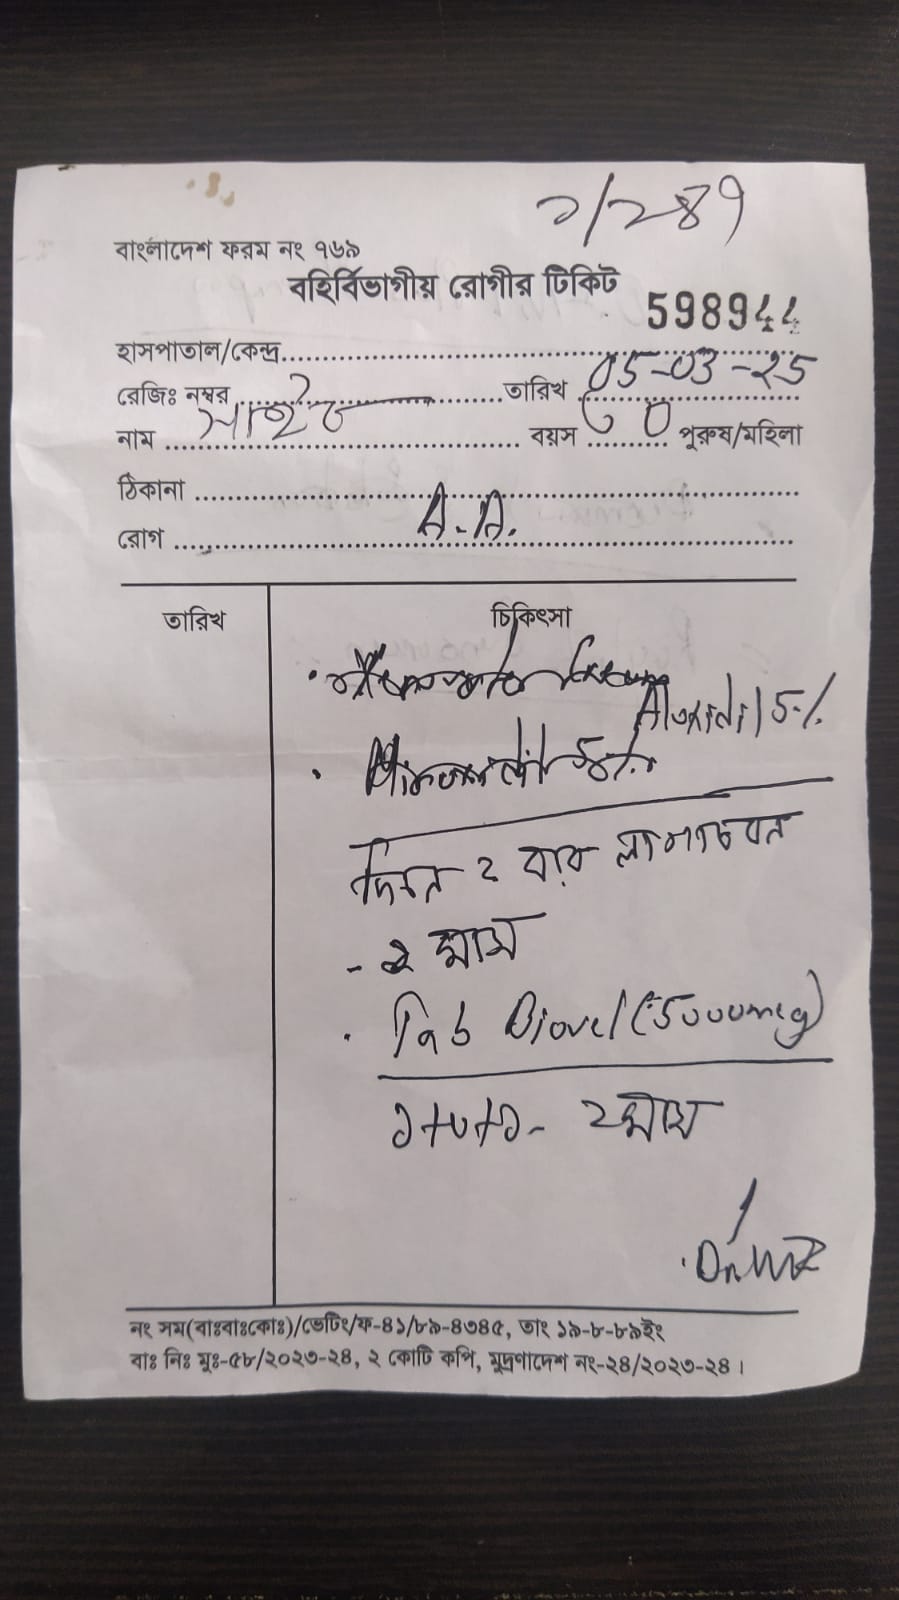 ২/২৪৭
বাংলাদেশ ফরম নং ৭৬৯
বহির্বিভাগীয় রোগীর টিকিট
598944
হাসপাতাল/কেন্দ্র
রেজিঃ নম্বর তারিখ 05-03-25
নাম বয়স পুরুষ/মহিলা
ঠিকানা
রোগ A.A.
তারিখ চিকিৎসা
5%
দিনে ২ বার লাগাবেন
- ২ মাস
Tab (5000mcg)
১+০+১ - ২মাস
নং সম(বাঃবাঃকোঃ)/ভেটিং/ফ-৪১/৮৯-৪৩৪৫, তাং ১৯-৮-৮৯ইং
বাঃ নিঃ মুঃ-৫৮/২০২৩-২৪, ২ কোটি কপি, মুদ্রণাদেশ নং-২৪/২০২৩-২৪ ।